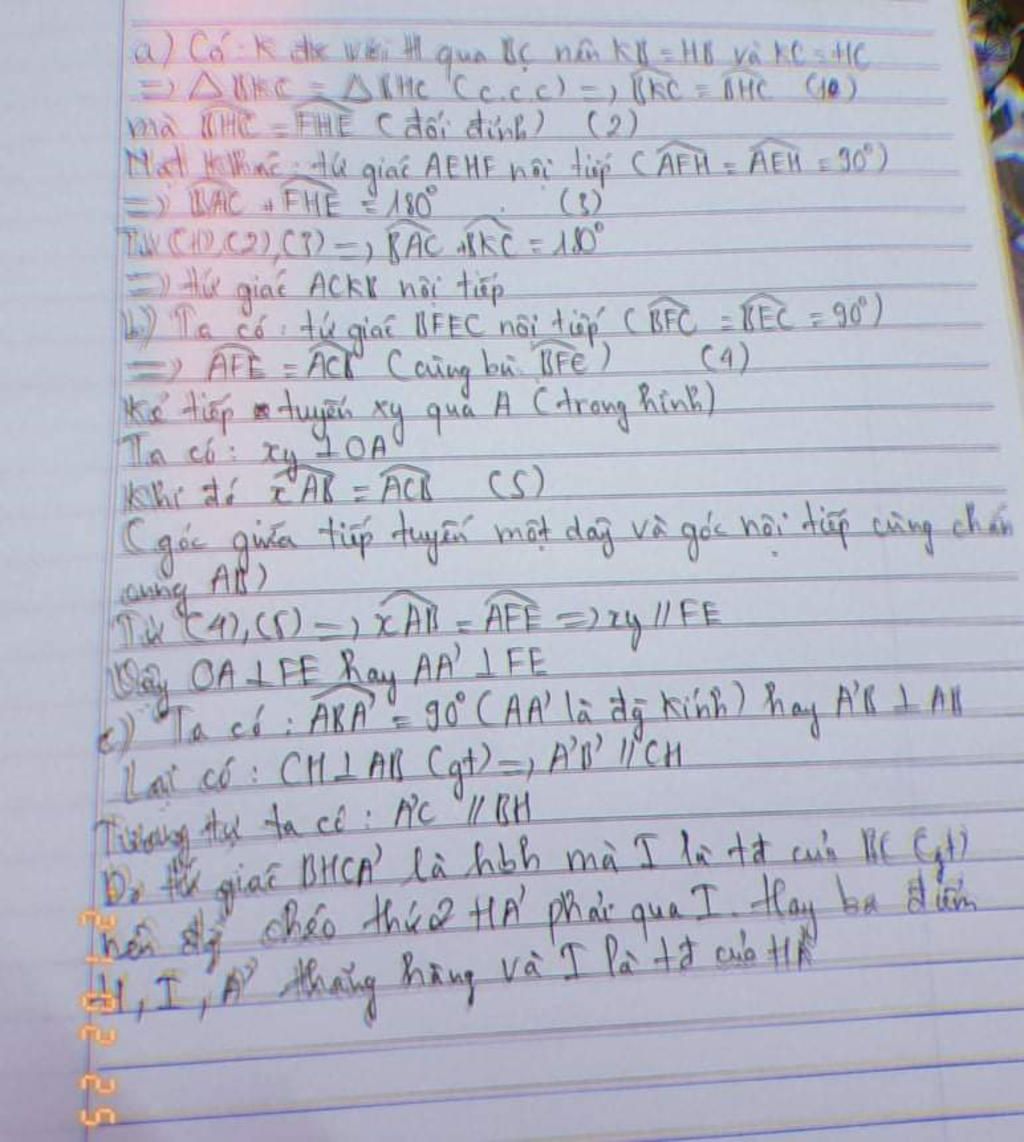 a) Có: K đx với H qua BC nên KB = HB và KC = HC
=> △BKC = △BHC (c.c.c) => B̂KC = B̂HC (1)
mà B̂HC = F̂HE (đối đỉnh) (2)
Mặt khác: tứ giác AEHF nội tiếp (ÂFH = ÂEH = 90°)
=> B̂AC + F̂HE = 180° (3)
Từ (1), (2), (3) => B̂AC + B̂KC = 180°
=> tứ giác ACKB nội tiếp
b) Ta có: tứ giác BFEC nội tiếp (B̂FC = B̂EC = 90°)
=> ÂFE = ÂCB (cùng bù B̂FE) (4)
Kẻ tiếp tuyến xy qua A (trong hình)
Ta có: xy ⊥ OA
Khi đó x̂AB = ÂCB (5)
(góc giữa tiếp tuyến một dây và góc nội tiếp cùng chắn
cung AB)
Từ (4), (5) => x̂AB = ÂFE => xy // FE
Vậy OA ⊥ FE hay AA' ⊥ FE
c) Ta có: ÂBA' = 90° (AA' là đg kính) hay A'B ⊥ AB
Lại có: CH ⊥ AB (gt) => A'B' // CH
Tương tự ta có: A'C // BH
Do tứ giác BHCA' là hbh mà I là tđ của BC (gt)
nên đg chéo thứ 2 HA' phải qua I. Hay ba điểm
H, I, A' thẳng hàng và I là tđ của HA'